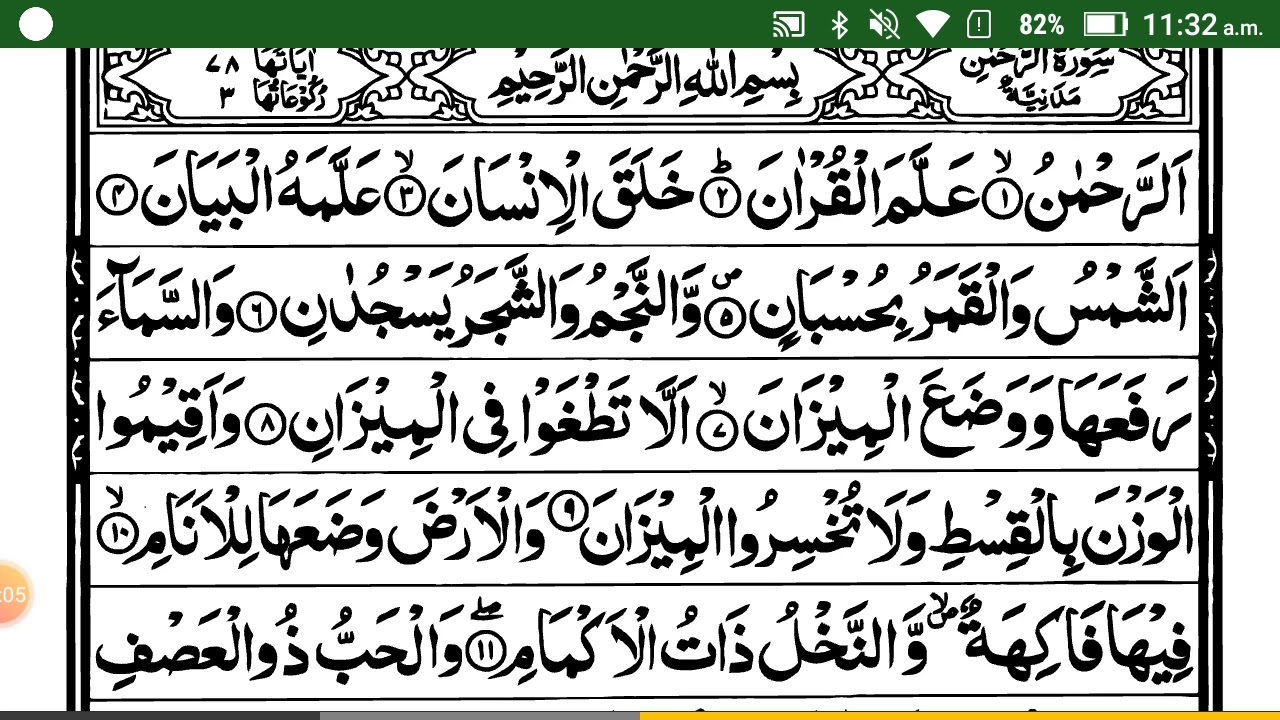 82% 11:32 a.m.
سُوْرَةُ الرَّحْمٰنِ مَدَنِيَّةٌ
بِسْمِ اللهِ الرَّحْمٰنِ الرَّحِيْمِ
اٰيَاتُهَا ٧٨ رُكُوْعَاتُهَا ٣
اَلرَّحْمٰنُ ۙ﴿١﴾ عَلَّمَ الْقُرْاٰنَ ؕ﴿٢﴾ خَلَقَ الْاِنْسَانَ ۙ﴿٣﴾ عَلَّمَهُ الْبَيَانَ ﴿٤﴾
اَلشَّمْسُ وَالْقَمَرُ بِحُسْبَانٍ ۪﴿٥﴾ وَّالنَّجْمُ وَالشَّجَرُ يَسْجُدٰنِ ﴿٦﴾ وَالسَّمَآءَ
رَفَعَهَا وَوَضَعَ الْمِيْزَانَ ۙ﴿٧﴾ اَلَّا تَطْغَوْا فِى الْمِيْزَانِ ﴿٨﴾ وَاَقِيْمُوا
الْوَزْنَ بِالْقِسْطِ وَلَا تُخْسِرُوا الْمِيْزَانَ ﴿٩﴾ وَالْاَرْضَ وَضَعَهَا لِلْاَنَامِ ۙ﴿١٠﴾
فِيْهَا فَاكِهَةٌ ۪ۙ وَّالنَّخْلُ ذَاتُ الْاَكْمَامِ ۖ﴿١١﴾ وَالْحَبُّ ذُو الْعَصْفِ
:05